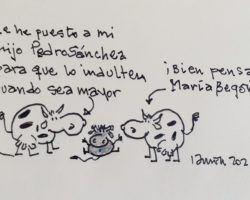 e he puesto a mi
hijo PedroSánchez
para que lo indulten
cuando sea mayor
¡Bien pensa
María Bego
202